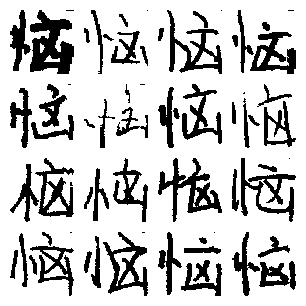 恼恼恼恼
恼恼恼恼
恼恼恼恼
恼恼恼恼